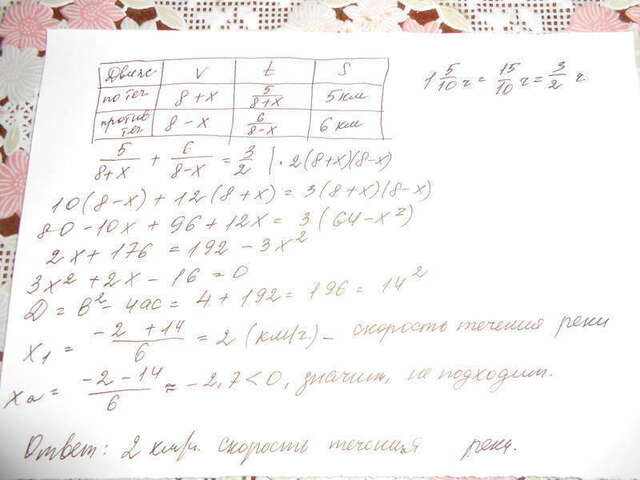 Движ. V t S
по теч 8+x 5/(8+x) 5 км
против теч 8-x 6/(8-x) 6 км
1 5/10 ч = 15/10 ч = 3/2 ч.
5/(8+x) + 6/(8-x) = 3/2 |·2(8+x)(8-x)
10(8-x)+12(8+x)=3(8+x)(8-x)
80-10x+96+12x=3(64-x²)
2x+176=192-3x²
3x²+2x-16=0
D=в²-4ас=4+192=196=14²
x₁ = (-2+14)/6 = 2 (км/ч) - скорость течения реки
x₂ = (-2-14)/6 ≈ -2,7<0, значит, не подходит.
Ответ: 2 км/ч. скорость течения реки.